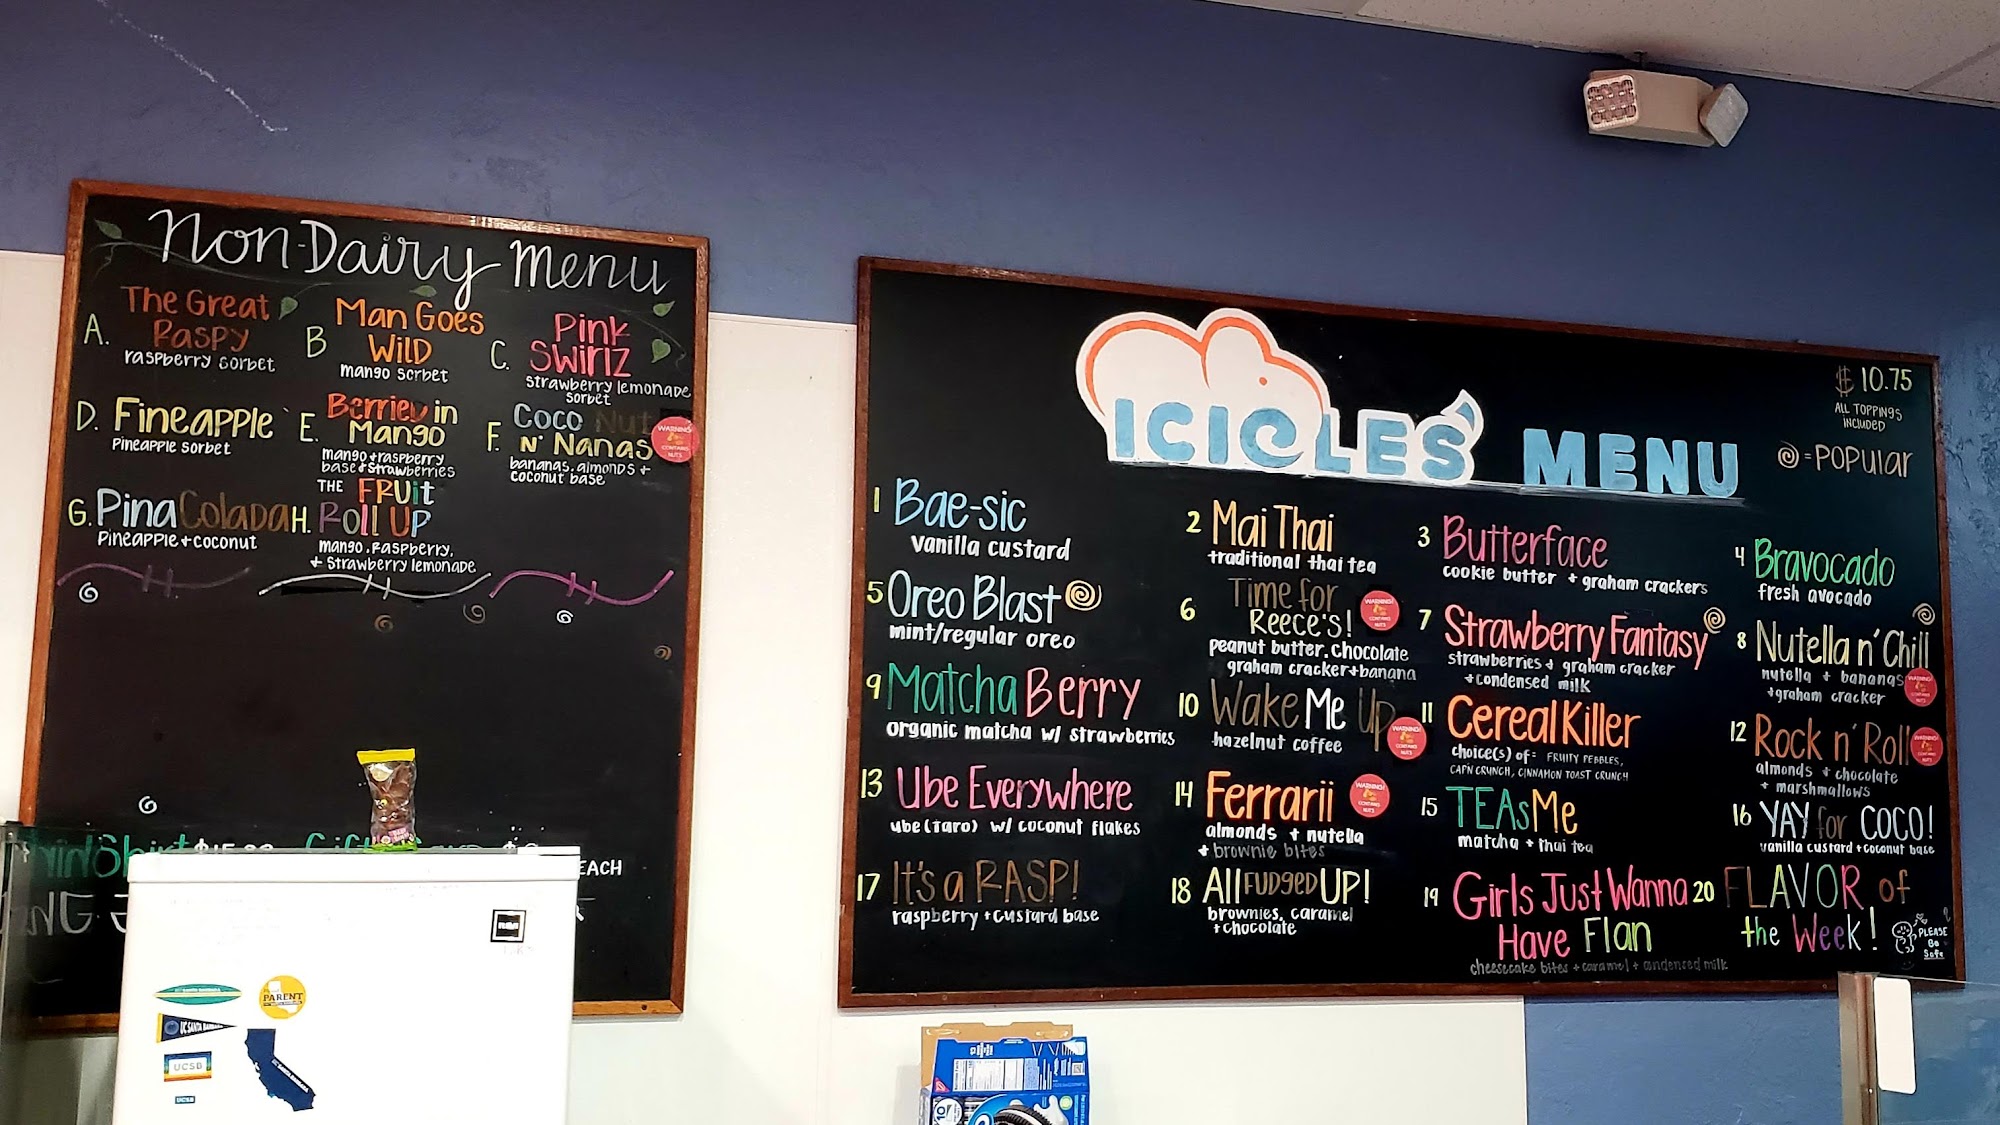 Non-Dairy Menu
A. The Great Raspy
raspberry sorbet
B Man Goes Wild
mango sorbet
C. Pink Swirlz
strawberry lemonade sorbet
D. Fineapple
Pineapple sorbet
E. Berried in Mango
mango + raspberry base + strawberries
F. Coco Nut N' Nanas
bananas, almonds + coconut base
WARNING! CONTAINS NUTS
G. Pina Colada
Pineapple + coconut
H. THE FRUit Roll UP
mango, raspberry, + strawberry lemonade
EACH
PARENT
UC SANTA BARBARA
UCSB
ICICLES MENU
$10.75
ALL TOPPINGS INCLUDED
= POPULAR
1 Bae-sic
vanilla custard
2 Mai Thai
traditional thai tea
3 Butterface
cookie butter + graham crackers
4 Bravocado
fresh avocado
5 Oreo Blast
mint/regular oreo
6 Time for Reece's!
peanut butter, chocolate graham cracker + banana
WARNING! CONTAINS NUTS
7 Strawberry Fantasy
strawberries + graham cracker + condensed milk
8 Nutella n' Chill
nutella + bananas + graham cracker
WARNING! CONTAINS NUTS
9 Matcha Berry
organic matcha w/ strawberries
10 Wake Me Up
hazelnut coffee
WARNING! CONTAINS NUTS
11 Cereal Killer
choice(s) of: FRUITY PEBBLES, CAP'N CRUNCH, CINNAMON TOAST CRUNCH
12 Rock n' Roll
almonds + chocolate + marshmallows
WARNING! CONTAINS NUTS
13 Ube Everywhere
ube (taro) w/ coconut flakes
14 Ferrarii
almonds + nutella + brownie bites
WARNING! CONTAINS NUTS
15 TEAs Me
matcha + thai tea
16 YAY for COCO!
vanilla custard + coconut base
17 It's a RASP!
raspberry + custard base
18 All FUDGED UP!
brownies, caramel + chocolate
19 Girls Just Wanna Have Flan
cheesecake bites + caramel + condensed milk
20 FLAVOR of the Week!
PLEASE Be Safe